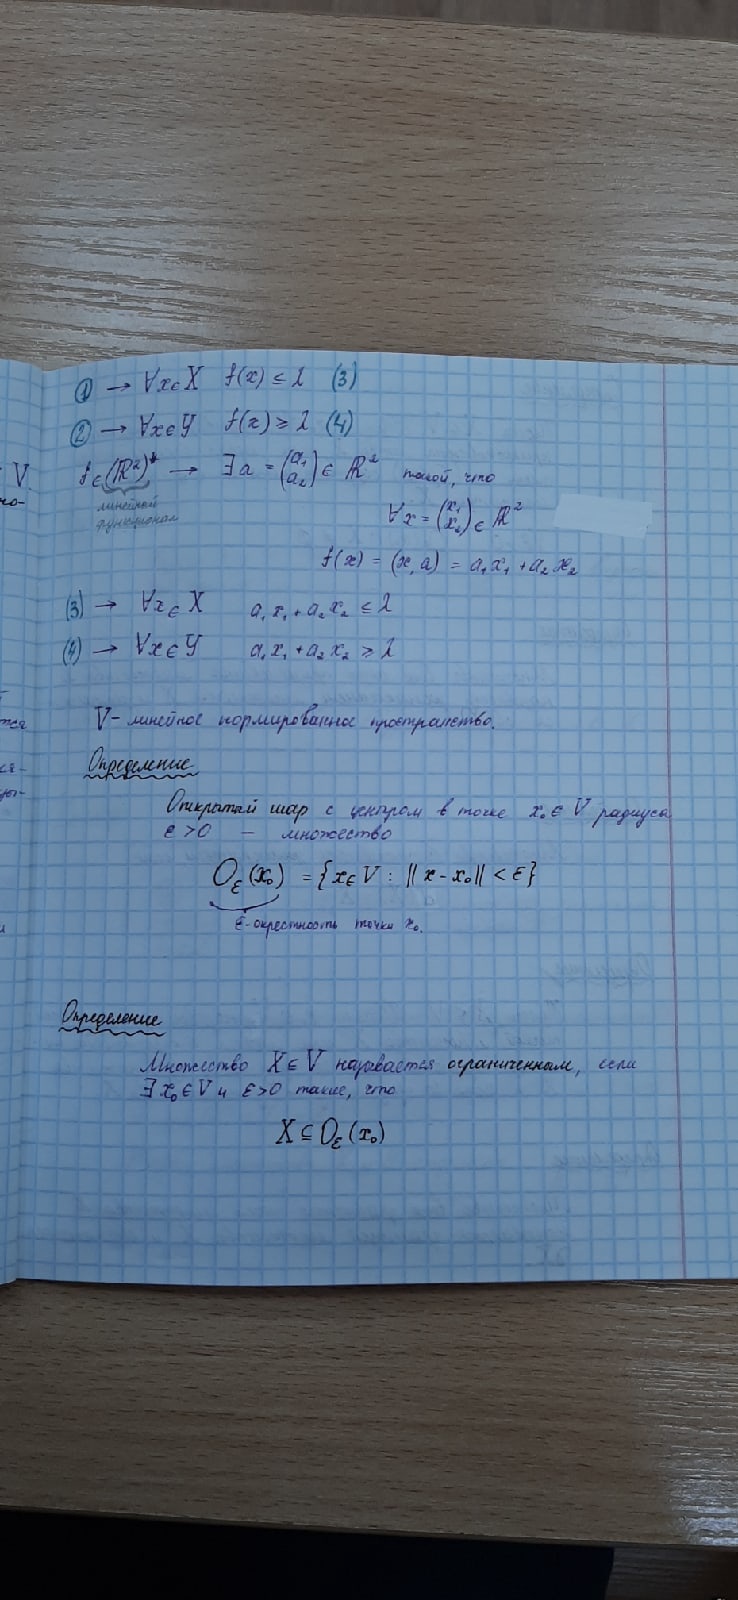 ① → ∀x∈X f(x) ≤ λ (3)
② → ∀x∈Y f(x) ≥ λ (4)
f∈(ℝ²)* → ∃a = (a₁ a₂) ∈ ℝ² такой, что
линейный
функционал
∀x = (x₁ x₂) ∈ ℝ²
f(x) = (x, a) = a₁x₁ + a₂x₂
(3) → ∀x∈X a₁x₁ + a₂x₂ ≤ λ
(4) → ∀x∈Y a₁x₁ + a₂x₂ ≥ λ
V - линейное нормированное пространство.
Определение
Открытый шар с центром в точке x₀∈V радиуса
ε>0 — множество
O_ε(x₀) = {x∈V : ||x - x₀|| < ε}
ε-окрестность точки x₀.
Определение
Множество X⊆V называется ограниченным, если
∃x₀∈V и ε>0 такие, что
X⊆O_ε(x₀)